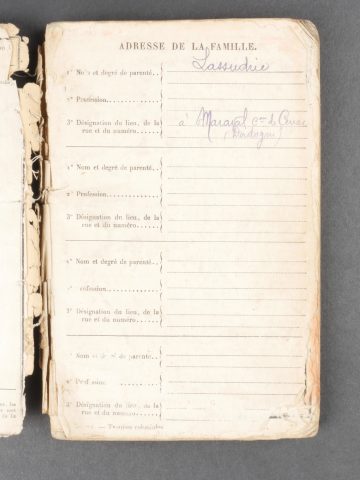 ADRESSE DE LA FAMILLE.
Lassudrie
1° Nom et degré de parenté..
2° Profession...........
3° Désignation du lieu, de la à Maraval cne de Cenac
rue et du numéro...... (Dordogne)
1° Nom et degré de parenté..
2° Profession...........
3° Désignation du lieu, de la
rue et du numéro......
1° Nom et degré de parenté..
2° Profession...........
3° Désignation du lieu, de la
rue et du numéro......
1° Nom et de parenté..
2° Profession...........
3° Désignation du lieu, de la
rue et du numéro......
Troupes coloniales